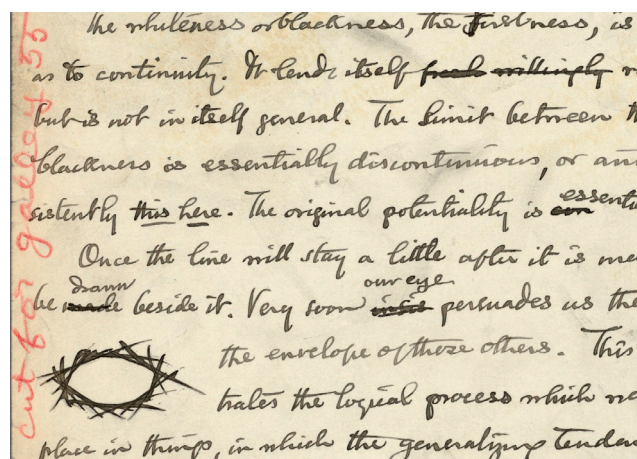 the whiteness or blackness, the firstness, is
as to continuity. It lends itself freely willingly
but is not in itself general. The limit between
blackness is essentially discontinuous, or
sistently this here. The original potentiality is essenti
Once the line will stay a little after it is
drawn our eye
be made beside it. Very soon persuades us
the envelope of those others. This
trates the logical process which
place in things, in which the generalizing tenden
cut for galley 55